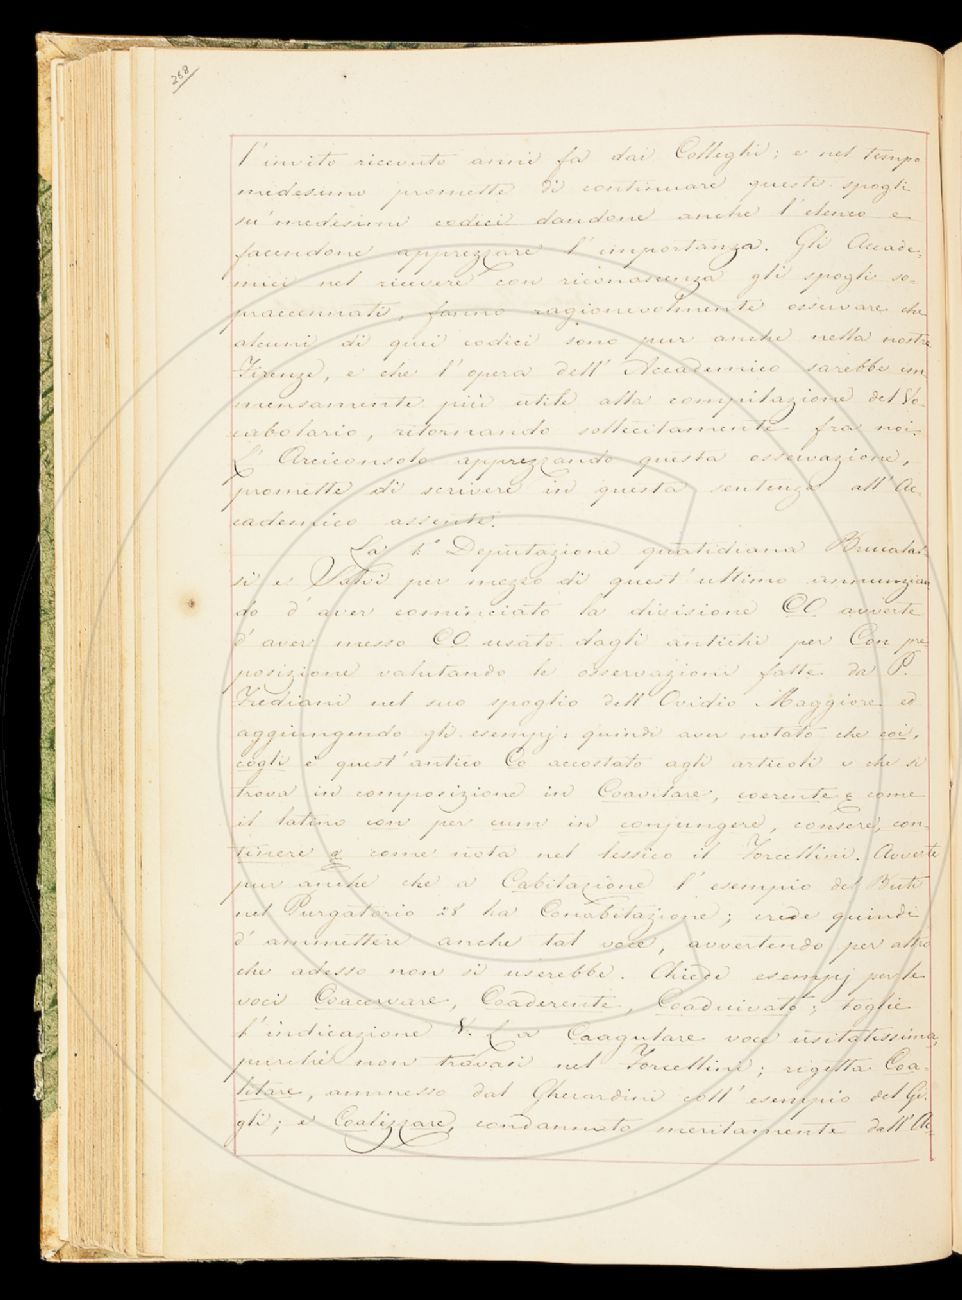 268
l'invito ricevuto anni fa dai Colleghi; e nel tempo
medesimo promette di continuare questi spogli
su' medesimi codici dandone anche l'elenco e
facendone apprezzare l'importanza. Gli Accade-
mici nel ricevere con riconoscenza gli spogli so-
praccennati, fanno ragionevolmente osservare che
alcuni di quei codici sono pur anche nella nostra
Firenze, e che l'opera dell'Accademico sarebbe im-
mensamente più utile alla compilazione del Vo-
cabolario, ritornando sollecitamente fra noi.
L'Arciconsolo apprezzando questa osservazione,
promette di scrivere in questa sentenza all'Ac-
cademico assente.
La 1a Deputazione quotidiana Brucalas-
si e Salvi per mezzo di quest'ultimo annunzian
do d'aver cominciato la divisione CO avverte
d'aver messo CO usato dagli antichi per Con pre-
posizione valutando le osservazioni fatte da P.
Frediani nel suo spoglio dell'Ovidio Maggiore ed
aggiungendo gli esempj: quindi aver notato che coi,
cogli è quest'antico Co accostato agli articoli e che si
trova in composizione in Coavitare, coerente e come
il latino con per cum in conjungere, consere, con-
tinere e come nota nel lessico il Forcellini. Avverte
pur anche che a Cabitazione l'esempio del Buti
nel Purgatorio 28 ha Conabitazione; crede quindi
d'ammettere anche tal voce, avvertendo per altro
che adesso non si userebbe. Chiede esempj per le
voci Coacervare, Coaderente, Coadiuvato; toglie
l'indicazione V. L. a Coagulare voce usitatissima,
purché non trovasi nel Forcellini; rigetta Coa-
litare, ammesso dal Gherardini coll'esempio del Gi-
gli; e Coalizzare, condannato meritamente dall'Ac-